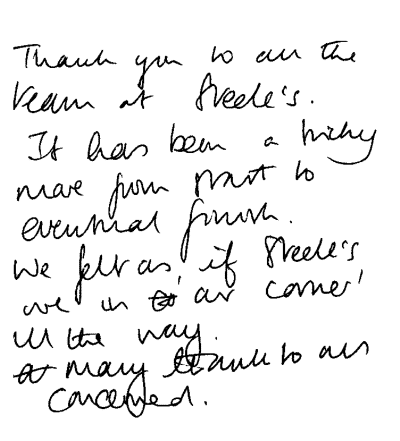 Thank you to all the
team at Steele's.
It has been a tricky
move from start to
eventual finish.
We felt as if Steele's
were in our corner'
all the way.
Many thanks to all
concerned.